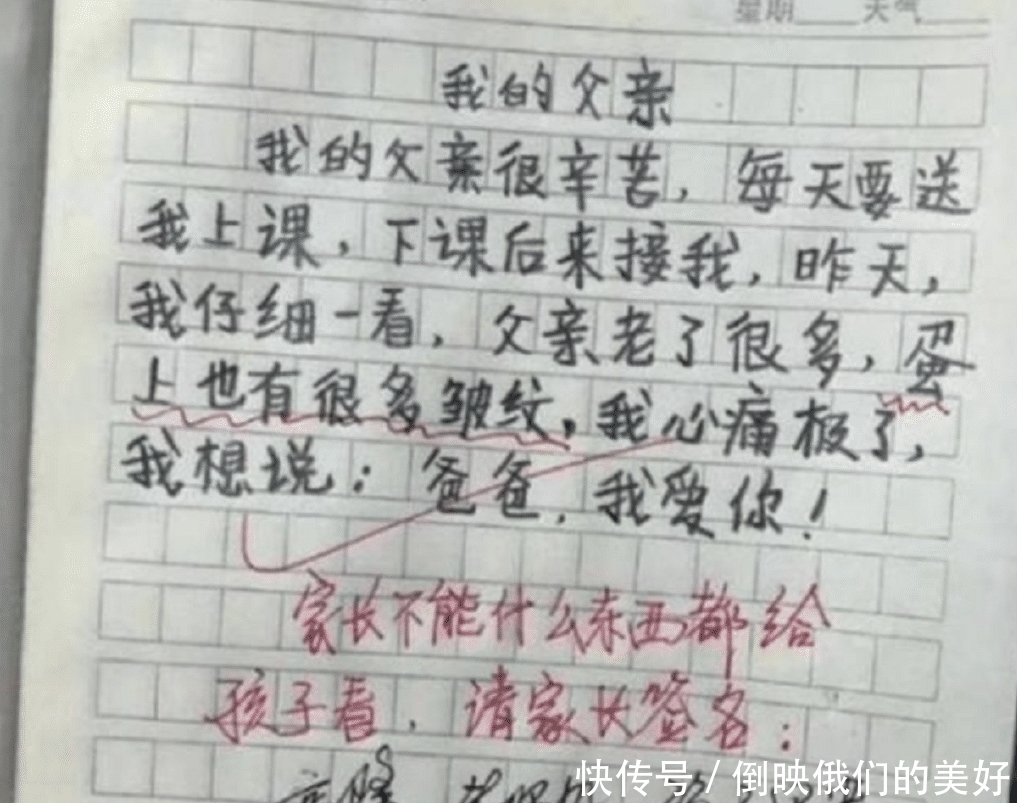 星期 天气
我的父亲
我的父亲很辛苦，每天要送
我上课，下课后来接我，昨天，
我仔细一看，父亲老了很多，蛋
上也有很多皱纹，我心痛极了，
我想说：爸爸，我爱你！
家长不能什么东西都给
孩子看，请家长签名：
快传号/倒映俄们的美好